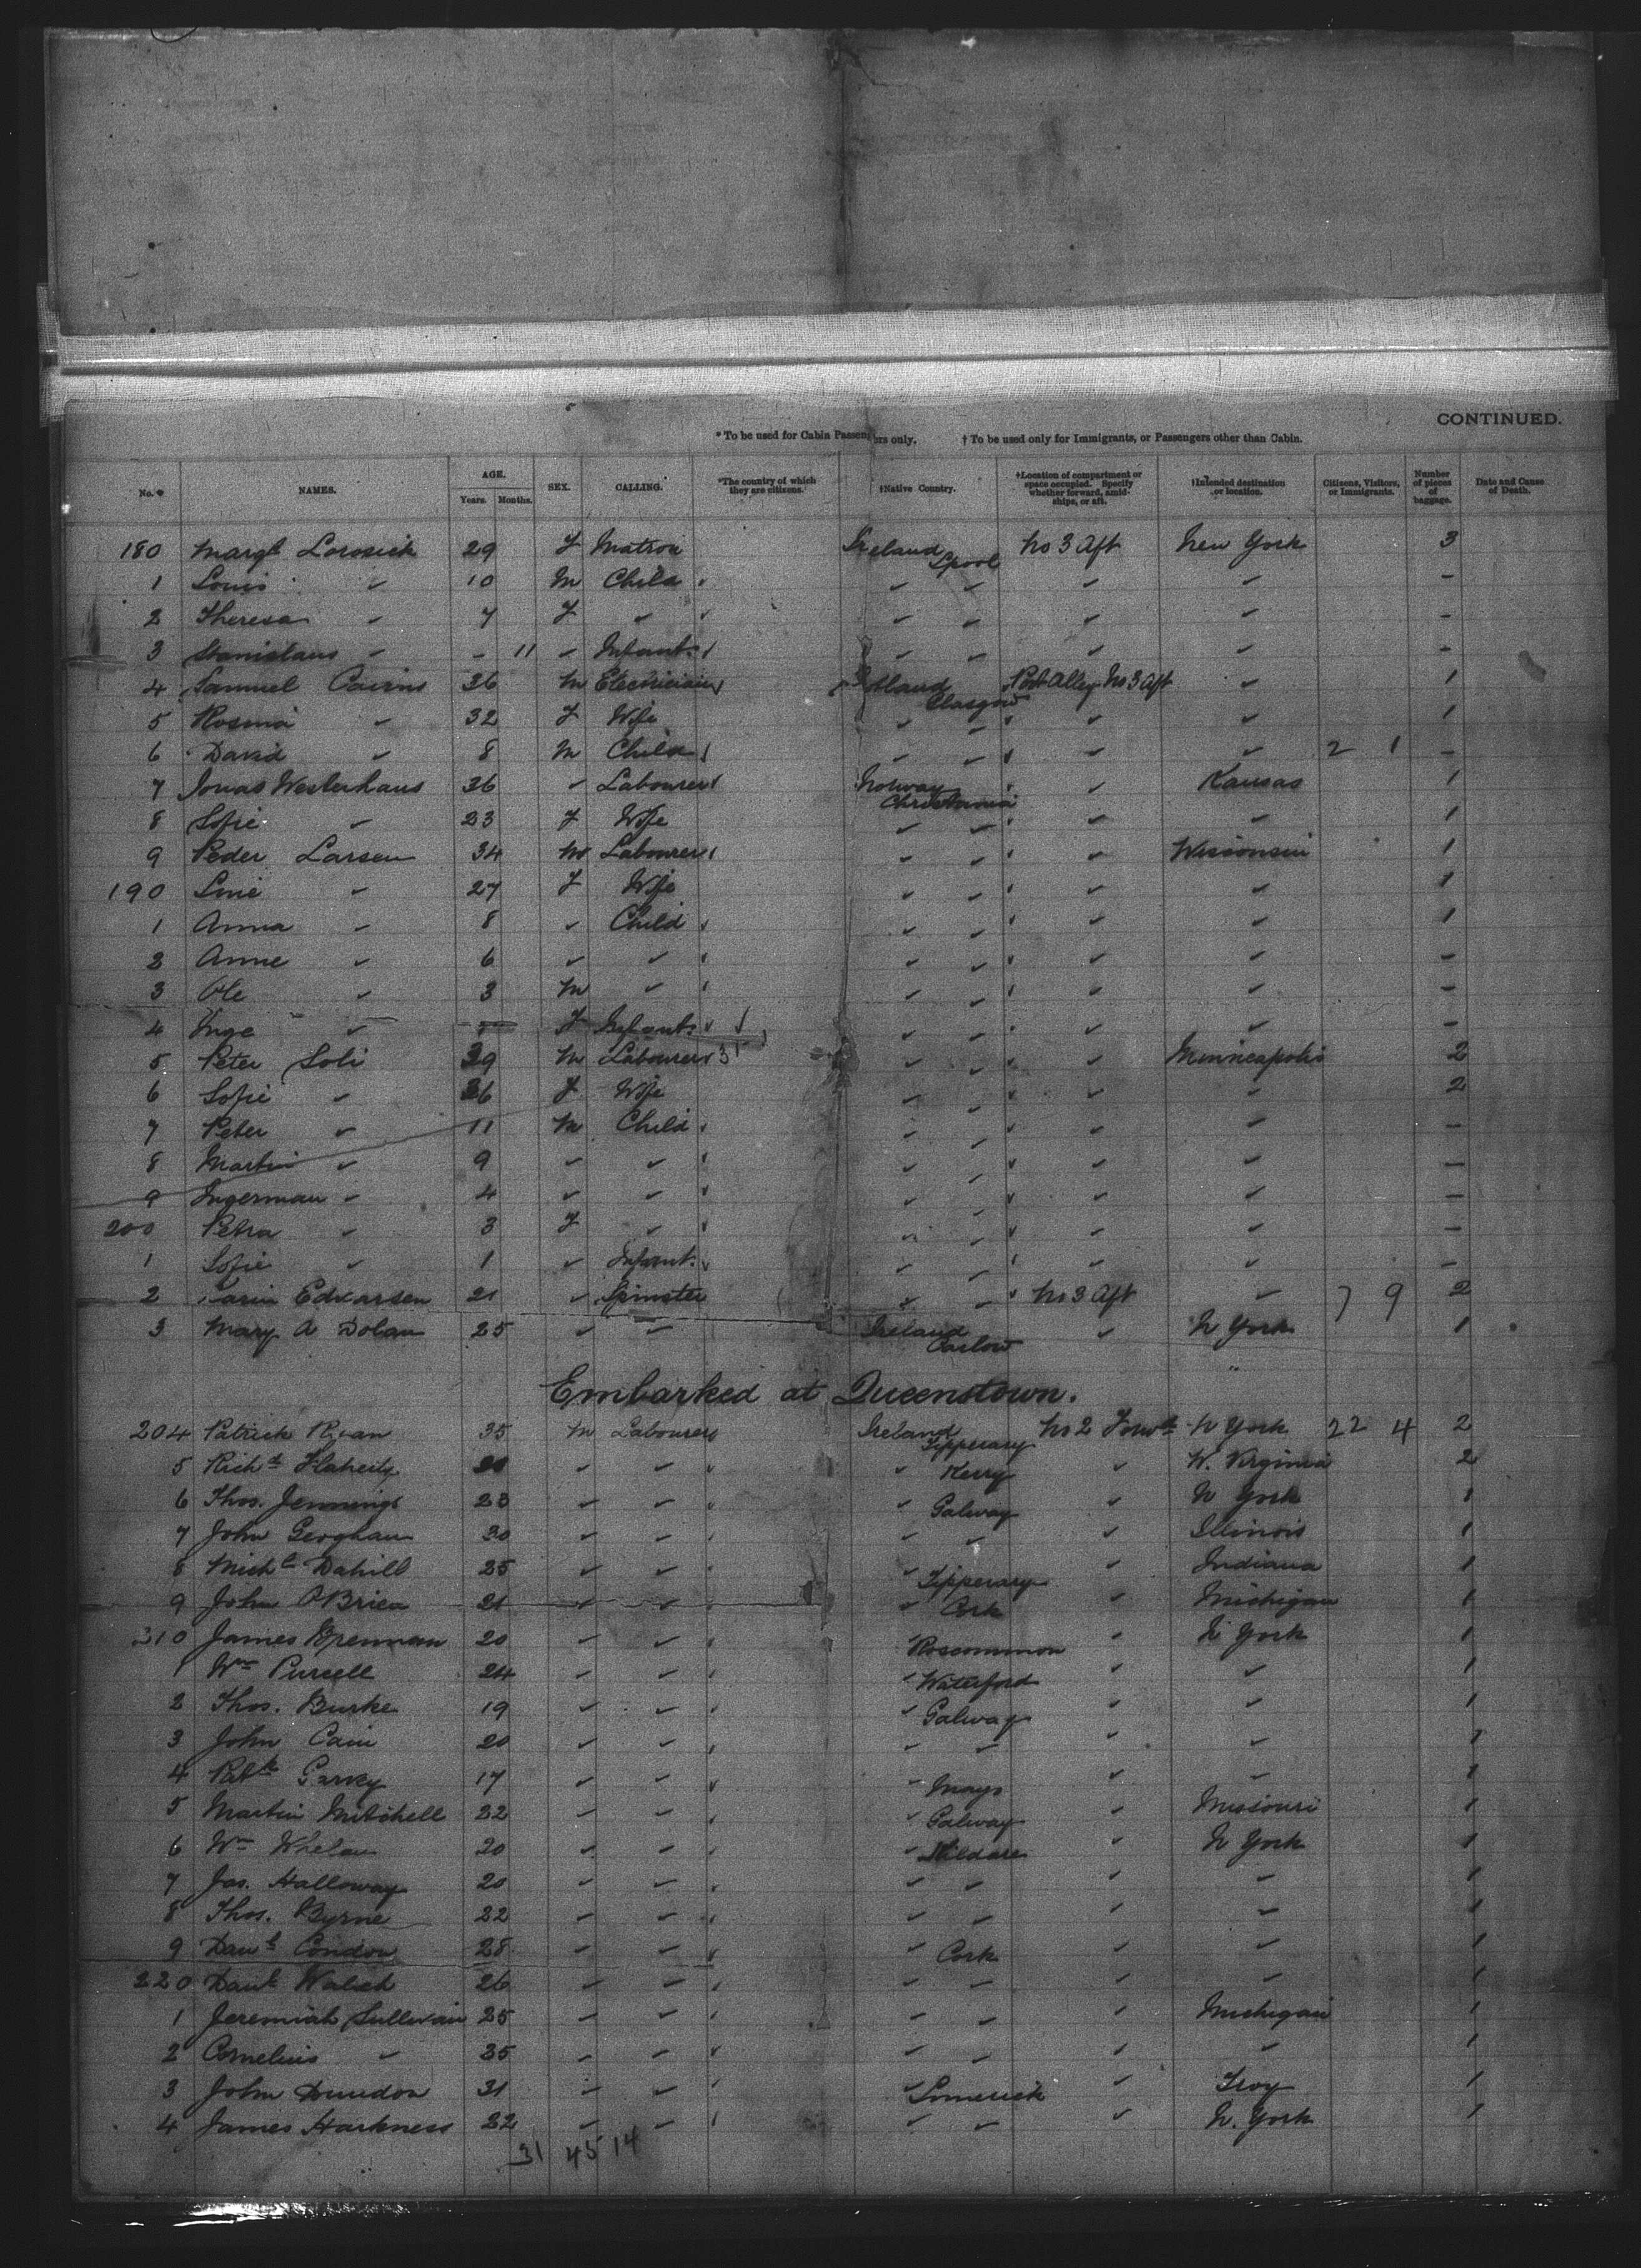 CONTINUED.
* To be used for Cabin Passengers only. † To be used only for Immigrants, or Passengers other than Cabin.
No.* NAMES. AGE. Years. Months. SEX. CALLING. *The country of which they are citizens. †Native Country. †Location of compartment or space occupied. Specify whether forward, amidships, or aft. †Intended destination or location. Citizens, Visitors, or Immigrants. Number of pieces of baggage. Date and Cause of Death.
180 Margt Lorosick 29 F Matron Ireland Lpool No 3 Aft New York 3
1 Louis " 10 M Child " " " " -
2 Theresa " 7 F " " " " " -
3 Stanislaus " - 11 " Infant " " " " -
4 Samuel Cairns 36 M Electrician Scotland Glasgow Port Alley No 3 Aft " 1
5 Rosina " 32 F Wife " " " " 1
6 David " 8 M Child " " " " 2 1 -
7 Jonas Westerhaus 36 " Labourer Norway Christiania " Kansas 1
8 Sofie " 23 F Wife " " " " 1
9 Peder Larsen 34 M Labourer " " " Wisconsin 1
190 Line " 27 F Wife " " " " 1
1 Anna " 8 " Child " " " " 1
2 Anne " 6 " " " " " " -
3 Ole " 3 M " " " " " -
4 Inge " F Infant " " " " -
5 Peter Soli 39 M Labourer " " " Minneapolis 2
6 Sofie " 36 F Wife " " " " 2
7 Peter " 11 M Child " " " " -
8 Martin " 9 " " " " " " -
9 Ingerman " 4 " " " " " " -
200 Petra " 3 F " " " " " -
1 Sofie " 1 " Infant " " " " -
2 Edvarsen 21 " Spinster " " No 3 Aft " 7 9 2
3 Mary A Dolan 25 " " Ireland Carlow " N York 1
Embarked at Queenstown.
204 Patrick Ryan 35 M Labourer Ireland Tipperary No 2 Forwd N York 22 4 2
5 Richd Flaherty " " " Kerry " W. Virginia 2
6 Thos. Jennings 23 " " " Galway " N York 1
7 John Geoghan 30 " " " " " Illinois 1
8 Michl Dahill 25 " " " Tipperary " Indiana 1
9 John O'Brien 21 " " " Cork " Michigan 1
310 James Brennan 20 " " " Roscommon " N York 1
1 Wm Pursell 24 " " " Waterford " " 1
2 Thos. Burke 19 " " " Galway " " 1
3 John Cain 20 " " " " " " 1
4 Patk Garvey 17 " " " Mayo " " 1
5 Martin Mitchell 22 " " " Galway " Missouri 1
6 Wm Whelan 20 " " " Kildare " N York 1
7 Jas. Halloway 20 " " " " " " 1
8 Thos. Byrne 22 " " " " " " 1
9 Danl Condon 28 " " " Cork " " 1
220 Danl Walsh 26 " " " " " " 1
1 Jeremiah Sullivan 25 " " " " " Michigan 1
2 Cornelius " 35 " " " " " " 1
3 John Dundon 31 " " " Limerick " Troy 1
4 James Harkness 22 " " " " " N. York 1
31 45 14